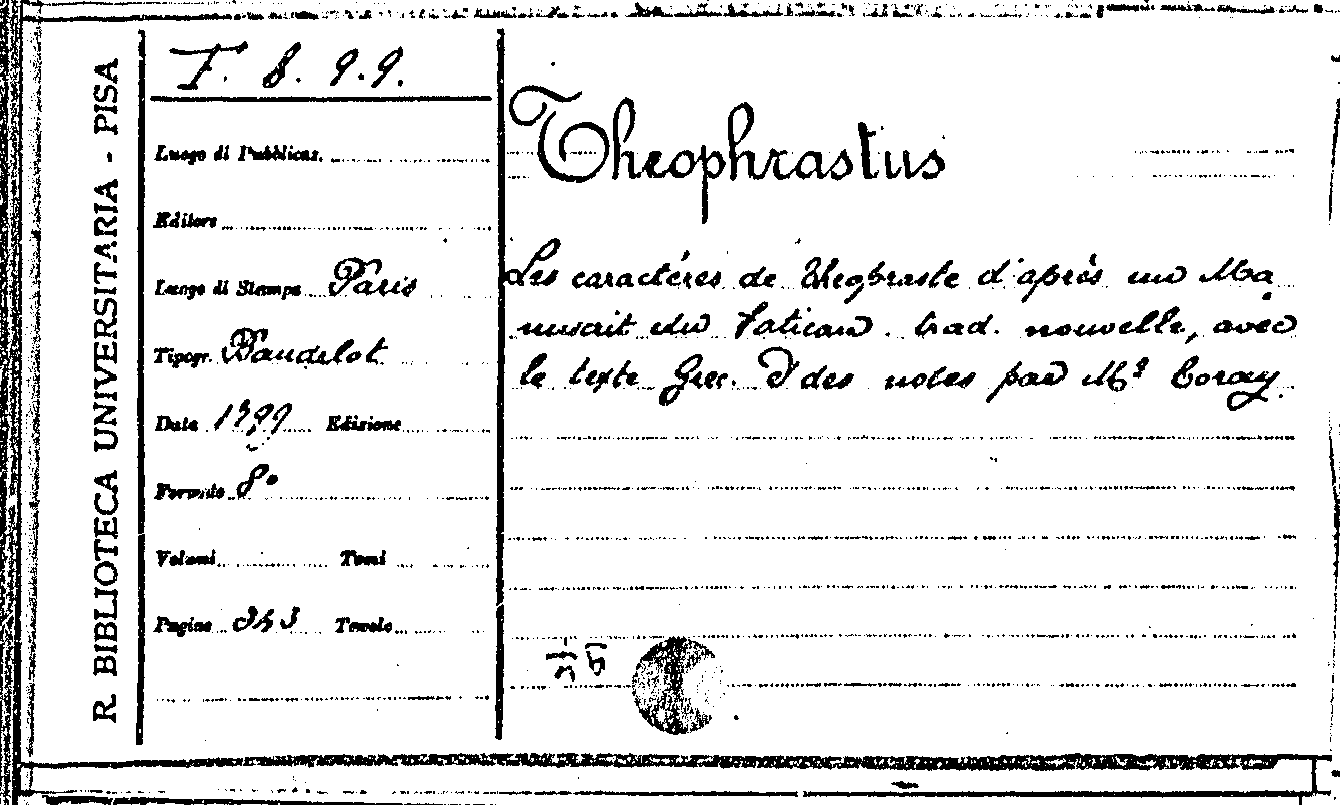 R. BIBLIOTECA UNIVERSITARIA - PISA
F. 8. 9. 9.
Luogo di Pubblicaz.
Editore
Luogo di Stampa Paris
Tipogr. Baudelot
Data 1799 Edizione
Formato 8°
Volumi Tomi
Pagine 343 Tavole
Theophrastus
Les caractéres de Theophraste d'après un Ma
nuscrit du Vatican. trad. nouvelle, avec
le texte Grec. & des notes par Mr Coray.